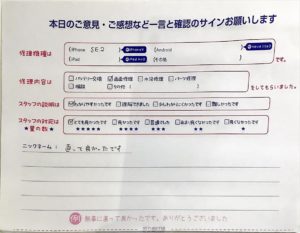 本日のご意見・ご感想など一言と確認のサインお願いします
修理機種は
iPhone SE2
Android
iPad
その他
です。
修理内容は
バッテリー交換 画面修理 水没修理 パーツ修理
その他
をしてもらいました。
スタッフの説明は
わかりやすかったです 理解できました 少しわかりにくかったです 難しかったです
スタッフの対応は
★星の数★
とても良かったです 良かったです 普通でした あまり良くなかったです 良くなかったです
★★★★★ ★★★★ ★★★ ★★ ★
ニックネーム:
直って良かったです
無事に直って良かったです。ありがとうございました